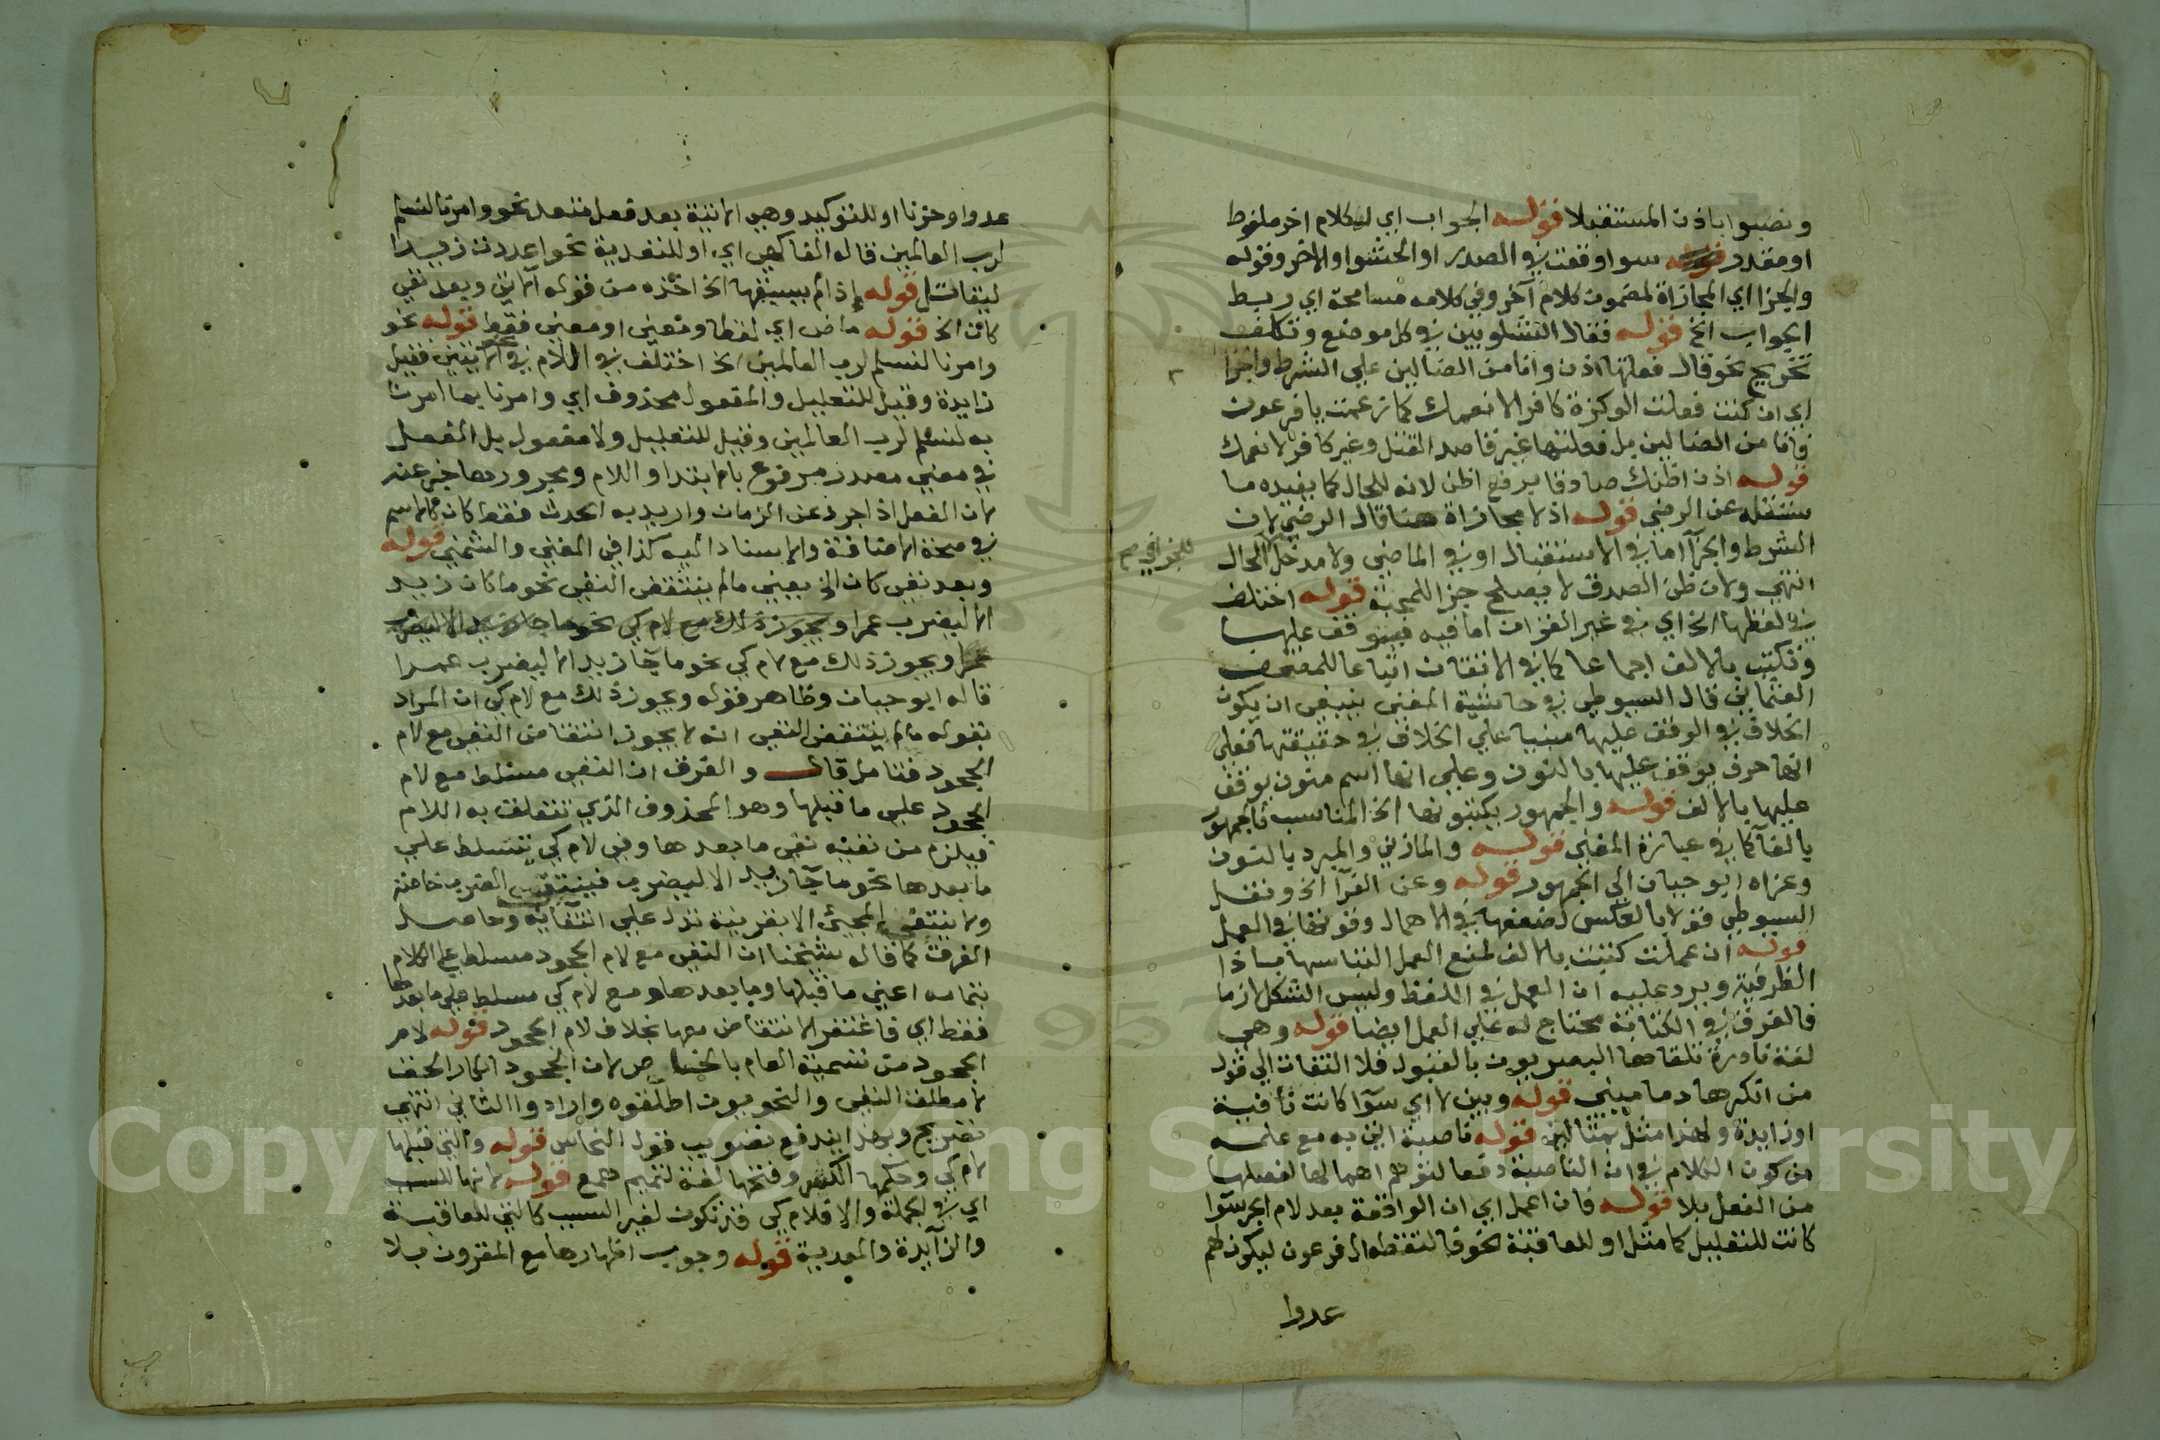 ونصبوا باذن المستقبلا قوله الجواب اي لكلام اخر ملفوظ
او مقدر سوا وقعت في الصدر او الحشو او الاخر وقوله
والجزا اي المجازاة لمضمون كلام آخر وفي كلامه مسامحة اي ربط
الجواب الخ قوله فقال الشلوبين في كل موضع وتكلف
تخريج نحو قال فعلتها اذن وانا من الضالين على الشرط والجزا
اي ان كنت فعلت الوكزة كافر الانعمك كما زعمت يا فرعون
فانا من الضالين بل فعلتها غير قاصد القتل وغير كافر لانعمك
قوله اذن اظنك صادقا برفع اظن لانه للحال كما يفيده ما
سننقله عن الرضي قوله اذ لا مجازاة هنا قال الرضي لان
الشرط والجزآ اما في الاستقبال او في الماضي ولا مدخل للحال
للجزا في صح
انتهى ولان ظن الصدق لا يصلح جزا للمحبة قوله اختلف
في لفظها الخ اي في غير القران اما فيه فيوقف عليها
وتكتب بالالف اجماعا كما في الاتقان اتباعا للمصحف
العثماني قال السيوطي في حاشية المغني ينبغي ان يكون
الخلاف في الوقف عليها مبنيا على الخلاف في حقيقتها فعلى
انها حرف يوقف عليها بالنون وعلى انها اسم منون يوقف
عليها بالالف قوله والجمهور يكتبونها الخ المناسب فالجمهور
بالفآ كما في عبارة المغني قوله والمازني والمبرد بالنون
وعزاه ابو حيان الى الجمهور قوله وعن الفرآ الخ ونقل
السيوطي قولا بالعكس لضعفها في الاهمال وقوتها في العمل
قوله ان عملت كتبت بالالف لمنع العمل التباسها باذا
الظرفية ويرد عليه ان العمل في اللفظ وليس الشكل لازما
فالفرق في الكتابة محتاج له على العمل ايضا قوله وهي
لغة نادرة تلقاها البصريون بالقبول فلا التفات الى قول
من انكرها دماميني قوله وبين لا اي سوآ كانت نافية
او زايدة ولهذا مثل بمثالين قوله ناصبة اتى به مع علمه
من كون الكلام في ان الناصبة دفعا لتوهم اهمالها لفصلها
من الفعل بلا قوله فان اعمل اي ان الواقعة بعد لام الجر سوآ
كانت للتعليل كما مثل او للعاقبة نحو فالتقطه ال فرعون ليكون لهم
عدوا
عدوا وحزنا او للتوكيد وهي الاتية بعد فعل متعد نحو وامرنا لنسلم
لرب العالمين قاله الفاكهي اي او للتعدية نحو اعددت زيدا
ليقاتل قوله إذ لم يسبقها الخ اخذه من قوله الاتي وبعد نفي
كان الخ قوله ماض اي لفظا ومعنى او معنى فقط قوله نحو
وامرنا لنسلم لرب العالمين الخ اختلف في اللام في نحو الايتين فقيل
زايدة وقيل للتعليل والمفعول محذوف اي وامرنا بما امرنا
به لنسلم لرب العالمين وقيل للتعليل ولا مفعول بل الفعل
في معنى مصدر مرفوع بالابتدا واللام ومجرورها خبر عنه
لان الفعل اذا جرد عن الزمان واريد به الحدث فقط كان كالاسم
في صحة الاضافة والاسناد اليه كذا في المغني والشمني قوله
وبعد نفي كان الخ يعني مالم ينتقض النفي نحو ما كان زيد
الا ليضرب عمرا ويجوز ذلك مع لام كي نحو ما جا زيد الا ليضرب
عمرا ويجوز ذلك مع لام كي نحو ما جآ زيد الا ليضرب عمرا
قاله ابو حيان وظاهر قوله ويجوز ذلك مع لام كي ان المراد
بقوله مالم ينتقض النفي انه لا يجوز انتقاض النفي مع لام
الجحود فتامل قال والفرق ان النفي مسلط مع لام
الجحود على ما قبلها وهو المحذوف الذي تتعلق به اللام
فيلزم من نفيه نفي ما بعدها وفي لام كي يتسلط على
ما بعدها نحو ما جآ زيد الا ليضرب فينتفي الضرب خاصة
ولا ينتفي المجئ الا بقرينة تدل على انتفائه وحاصل
الفرق كما قاله شيخنا ان النفي مع لام الجحود مسلط على الكلام
بتمامه اعني ما قبلها وما بعدها ومع لام كي مسلط على ما بعدها
فقط اي فاغتفر الانتقاض معها بخلاف لام الجحود قوله لام
الجحود من تسمية العام بالخاص لان الجحود انكار الحق
لا مطلق النفي والنحويون اطلقوه وارادوا الثاني انتهى
تصريح وبهذا يندفع تصويب قول النحاس قوله والتي قبلها
لام كي وحكمها الكسر وفتحها لغة لتميم همع قوله لانها للسبب
اي في الجملة والا فلام كي قد تكون لغير السبب كالتي للعاقبة
والزآيدة والمعدية قوله وجوب اظهارها مع المقرون بلا